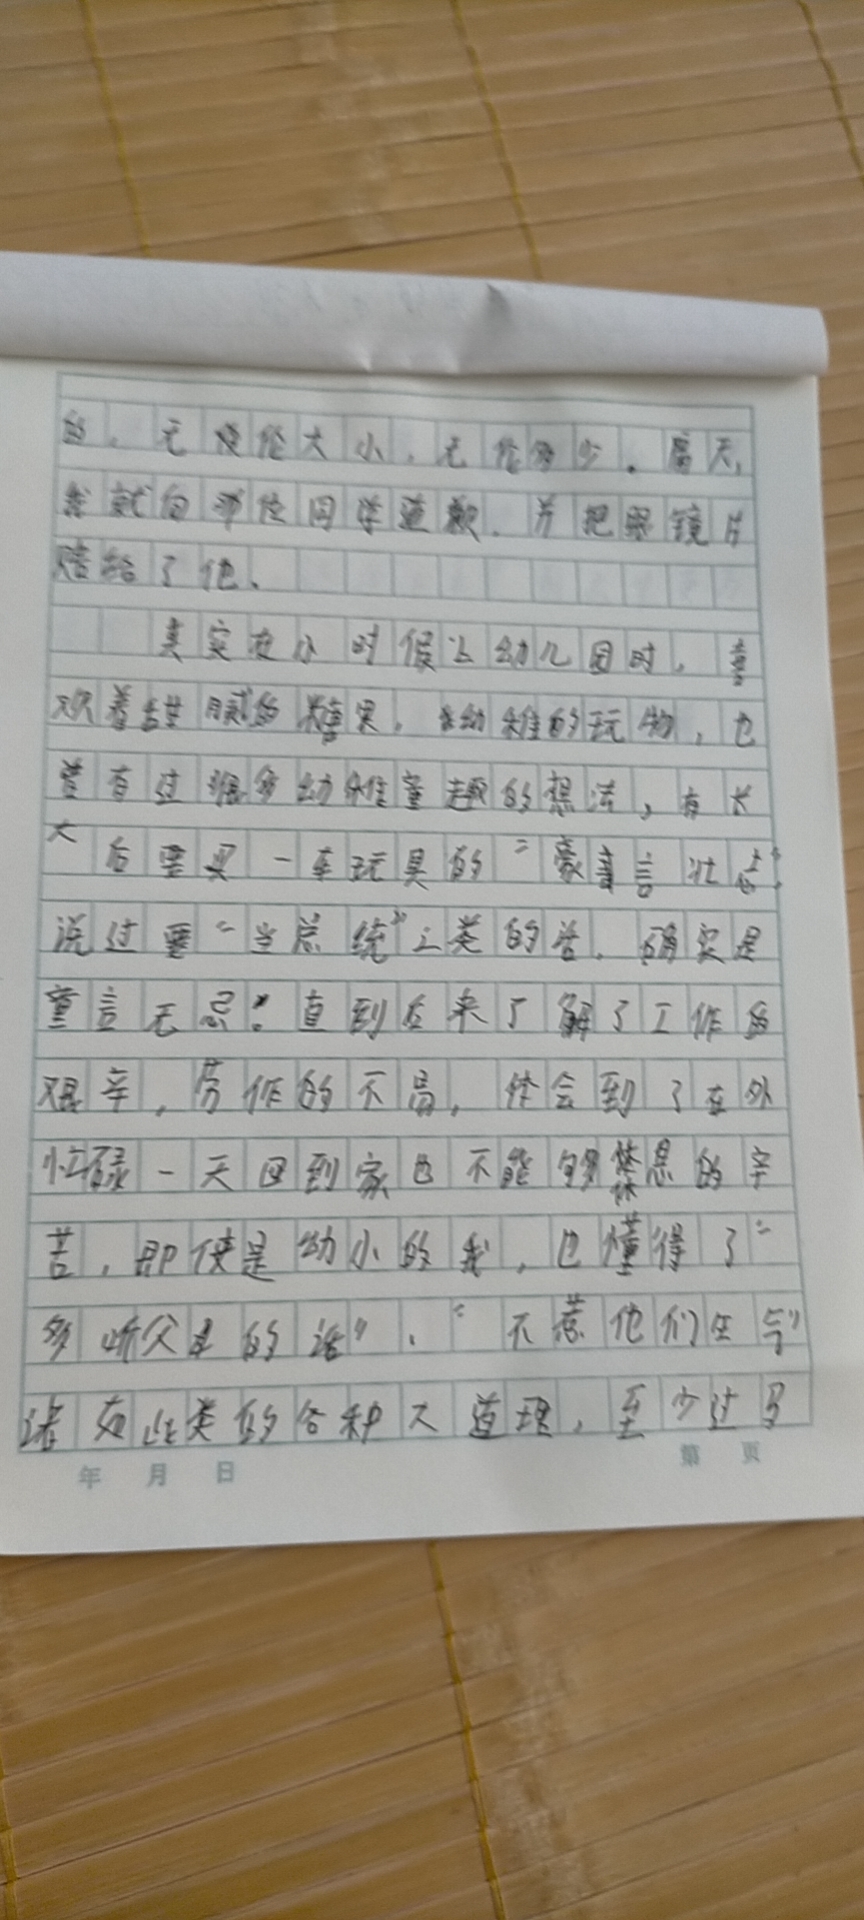 的，无论大小，无论多少。隔天，
我就向那位同学道歉，并把眼镜片
赔给了他。
其实在小时候上幼儿园时，喜
欢着甜腻的糖果，幼稚的玩物，也
曾有过很多幼稚童趣的想法，有长
大后要买一车玩具的“豪言壮志”
说过要“当总统”之类的话，确实是
童言无忌：直到后来了解了工作的
艰辛，劳作的不易，体会到了在外
忙碌一天回到家也不能够休息的辛
苦，即使是幼小的我，也懂得了“
多听父母的话”，“不惹他们生气”
诸如此类的各种大道理，至少过多
年 月 日 第 页